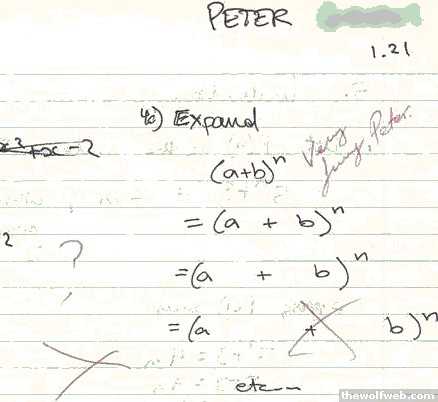 PETER
1.21
4c) Expand
(a+b)ⁿ
Very funny, Peter.
x² + x - 2
= (a + b)ⁿ
2
?
= (a + b)ⁿ
= (a + b)ⁿ
etc...
thewolfweb.com